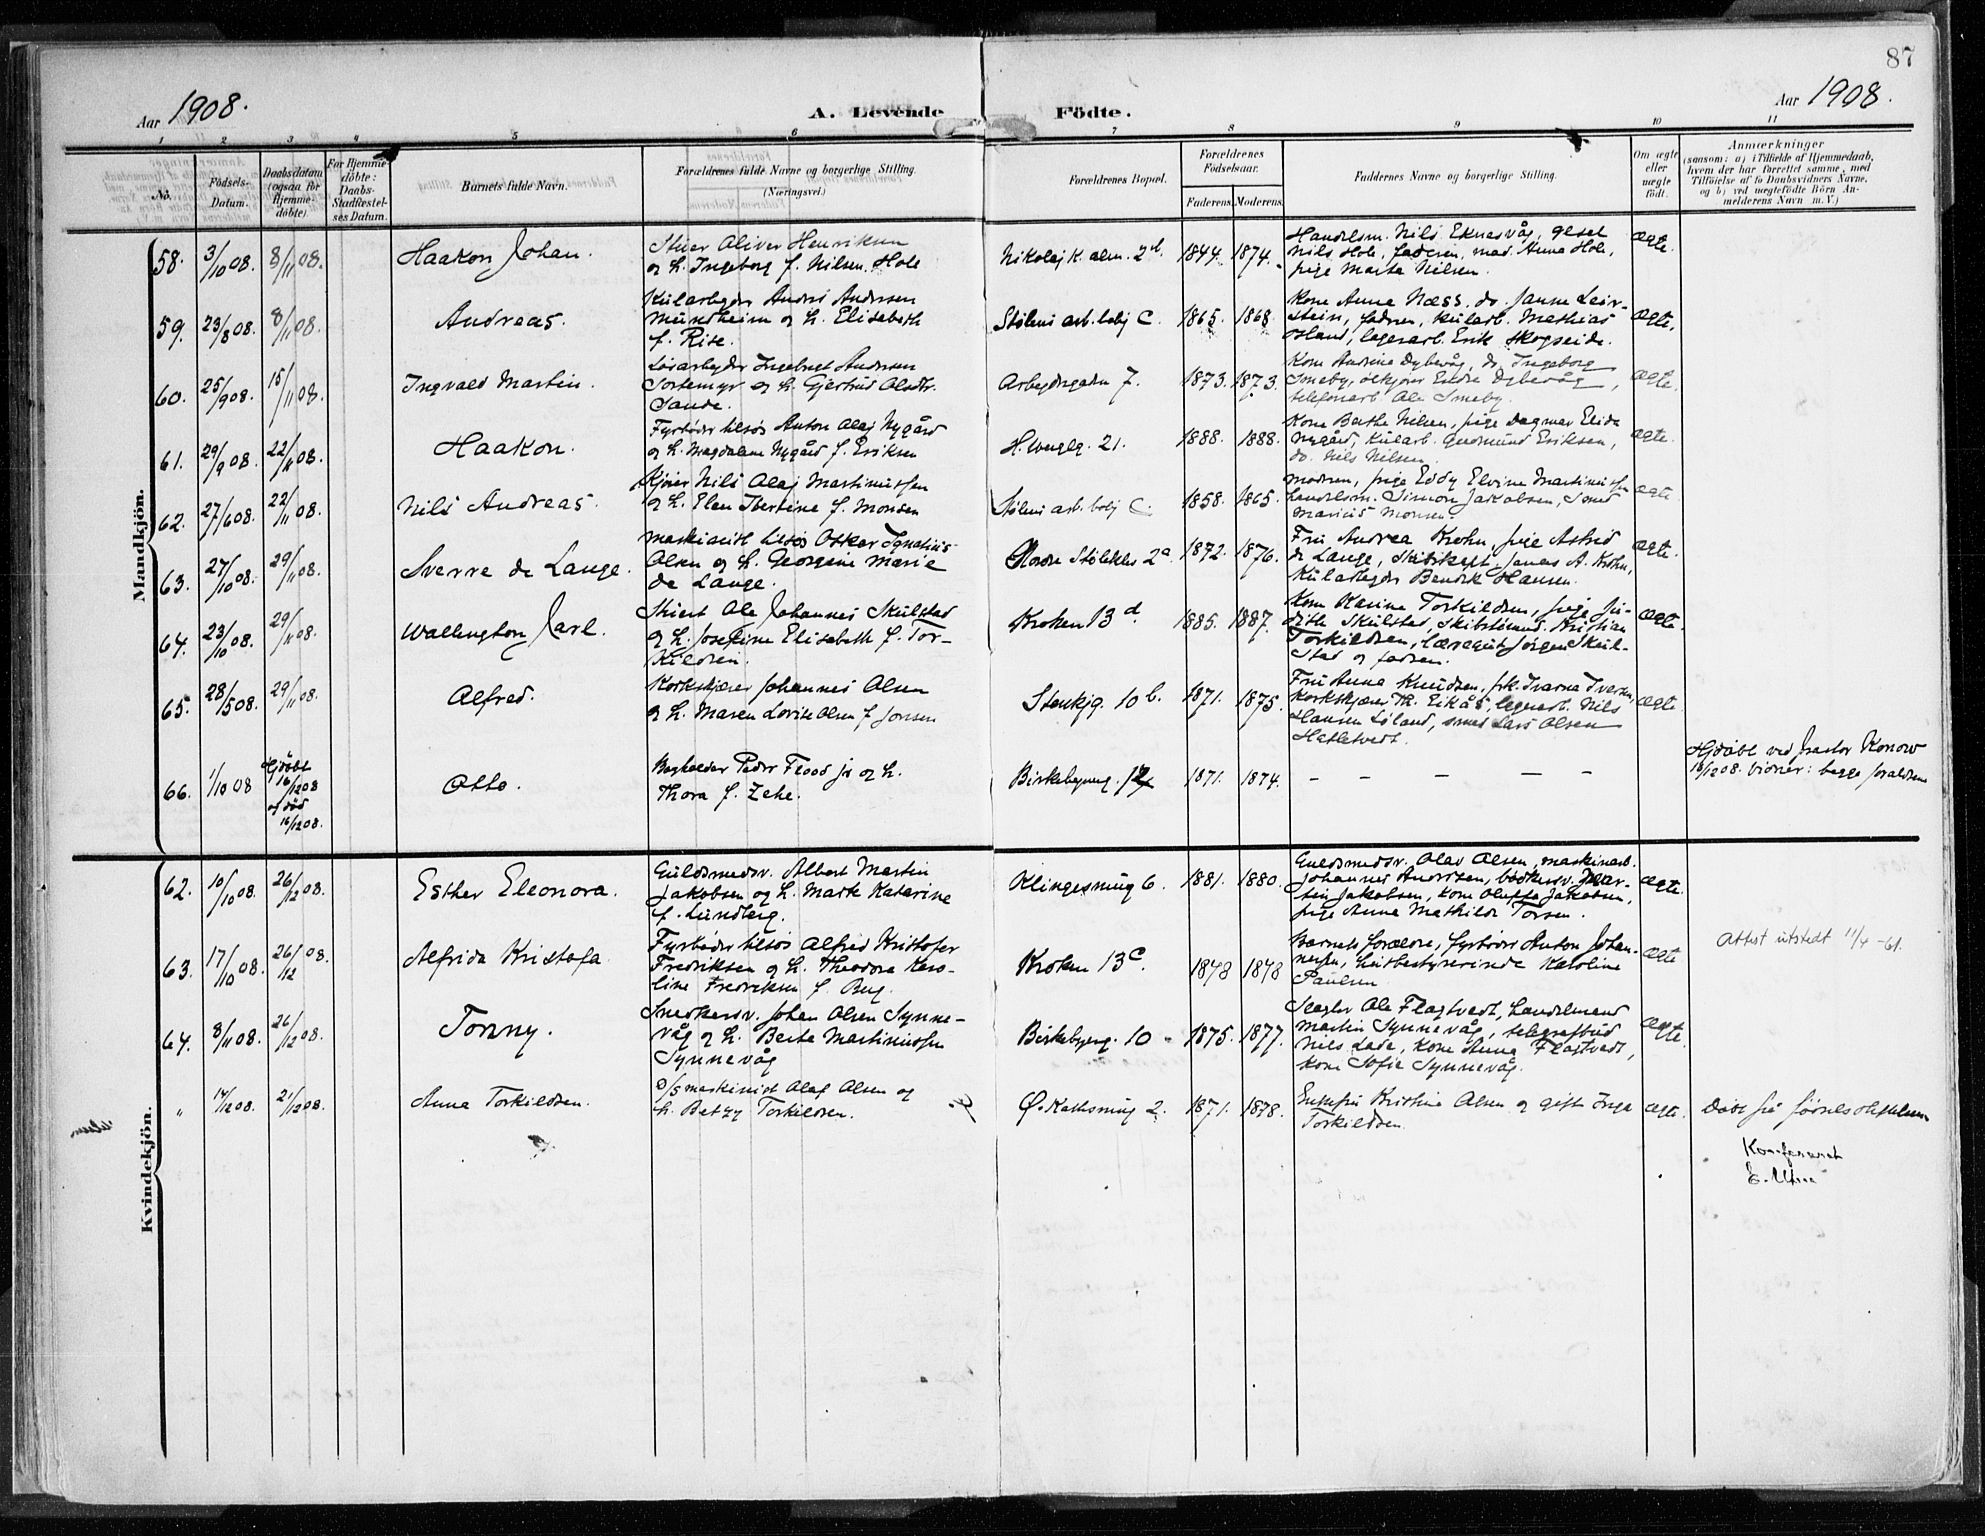 87
Aar 1908.
A. Levende Födte.
Aar 1908.
1 2 3 4 5 6 7 8 9 10 11
No.
Födsels-
Datum.
Daabsdatum
(ogsaa for
Hjemme-
döbte)
For Hjemme-
döbte:
Daabs-
Stadfæstel-
ses Datum.
Barnets fulde Navn.
Forældrenes fulde Navne og borgerlige Stilling.
(Næringsvei.)
Forældrenes Bopæl.
Forældrenes
Födselsaar.
Faderens. Moderens.
Faddernes Navne og borgerlige Stilling.
Om ægte
eller
uægte
födt.
Anmærkninger
(saasom: a) i Tilfælde af Hjemmedaab,
hvem der har forrettet samme, med
Tilföielse af to Daabsvidners Navne,
og b) ved uægtefödte Börn An-
melderens Navn m. V.)
Mandkjön.
58. 3/10 08. 8/11 08.
Haakon Johan.
Stuer Oliver Henriksen
og h. Ingeborg f. Nilsen Hole
Nikolaj K. alm. 2d 1844. 1874.
Handelsm. Nils Eknesvåg, gesel
Nils Hole, faderen, mad. Anna Hole,
pige Marta Nilsen.
ægte.
59. 23/8 08. 8/11 08.
Andreas.
Kularbeyder Andrê Andersen
Mundheim og h. Elisabeth
f. Rise.
Stølens arb.bolj C. 1865. 1868.
Kone Anna Næss, do. Janne Leir-
stein, faderen, kularb. Mathias
Øsland, lagerarb. Erik Skogseide.
ægte.
60. 25/9 08. 15/11 08.
Ingvald Martin.
Løsarbeyder Ingebrigt Andersen
Tortemyr og h. Gjertrud
Sande.
Arbeydergaden 7. 1873. 1873.
Kone Andrine Dybevåg, do Ingeborg
Smeby, ølkjører Endre Dybevåg,
telefonarb Ole Smeby.
ægte.
61. 29/9 08. 22/11 08.
Haakon.
Fyrbøder tilsøs Anton Olaj Nygård
og h. Magdalene Nygård f. Eriksen
H. Wergelg. 21. 1888. 1888.
Kone Berthe Nilsen, pige Dagmar Elida
Nygård, kularb. Gudmund Eriksen,
do. Nils Nilsen.
ægte.
62. 27/6 08. 22/11 08.
Nils Andreas.
Kjører Nils Olaj Martinussen
og h. Elen Ibertine f. Monsen
Stølens arb. bolj C. 1858. 1865.
Modren, pige Eddy Elvine Martinussen,
handelsm. Simon Jakobsen, smed
Marius Monsen.
ægte
63. 27/10 08. 29/11 08.
Sverre de Lange.
Maskinist tilsøs Oskar Ignatius
Olsen og h. Georgine Marie
de Lange.
Nordre Stølekles 2a 1872. 1876.
Fru Andrea Krohn, pige Astrid
de Lange, skibskapt. Jonas A. Krohn,
kularbeyder Bendik Hansen.
ægte.
64. 23/10 08. 29/11 08.
Wallington Jarl.
Stuert Ole Johannes Skulstad
og h. Josefine Elisabeth f. Tor-
kildsen.
Kroken 13 d. 1885. 1887.
Kone Karine Torkildsen, pige Ju-
dith Skulstad, Kristian
Torkildsen, læregut Jørgen Skul-
stad og fadren.
ægte.
65. 28/5 08. 29/11 08.
Alfred.
Korkskjærer Johannes Olsen
og h. Maren Lovise Olsen f. Jonsen
Stenkjg. 10 b. 1871. 1875.
Fru Anna Knudsen, frk. Ivarna Iversen,
korkskjærer Th. Eikås, lagerarb. Nils
Hansen Løland, smed Lars Olsen
Hatletvedt.
ægte.
66. 1/10 08
Hjdøbt
16/12 08
og død
16/12 08.
Otto.
Bogholder Peder Flood jr og h.
Thora f. Zehe.
Birkebeynerg. 12 1871. 1874.
– – – – –
Hjdøbt ved pastor Konow
16/12 08. Vidner: begge forældrene
Kvindekjön.
62. 10/10 08. 26/12 08.
Esther Eleonora.
Guldsmedsv. Albert Martin
Jakobsen og h. Marte Katarine
f. Lundberg.
Klingesmug 6. 1881. 1880.
Guldsmedsv. Olav Olsen, maskinarb.
Johannes Andersen, bødkersv. Mar-
tin Jakobsen, kone Oluffa Jakobsen,
pige Anna Mathilde Torsen.
ægte.
63. 17/10 08. 26/12 08.
Alfrida Kristofa.
Fyrbøder tilsøs Alfred Kristofer
Fredriksen og h. Theodora Karo-
line Fredriksen f. Berg.
Kroken 13 c. 1878 1878
Barnets forældre, fyrbøder Anton Johan-
nessen, husbestyrerinde Karoline
Paulsen
ægte
Attest utstedt 11/4 -61.
64. 8/11 08. 26/12 08.
Tonny.
Snedkersv. Johan Olsen Synne-
våg og h. Berta Martinussen
Synnevåg
Birkebeynerg. 10 1875. 1877.
Slagter Ole Flagtvedt, handelsmand
Martin Synnevåg, telegrafbud
Nils Lade, kone Anna Flagtvedt,
kone Sofie Synnevåg.
ægte.
" 14/12 08. 21/12 08.
Anna Torkildsen.
D/S maskinist Olaf Olsen og
h. Betzy Torkildsen.
Ø. Kalksmug 2. 1871. 1878.
Enkefru Kristine Olsen og gift Inga
Torkildsen.
ægte.
Døbt på
Konfereret